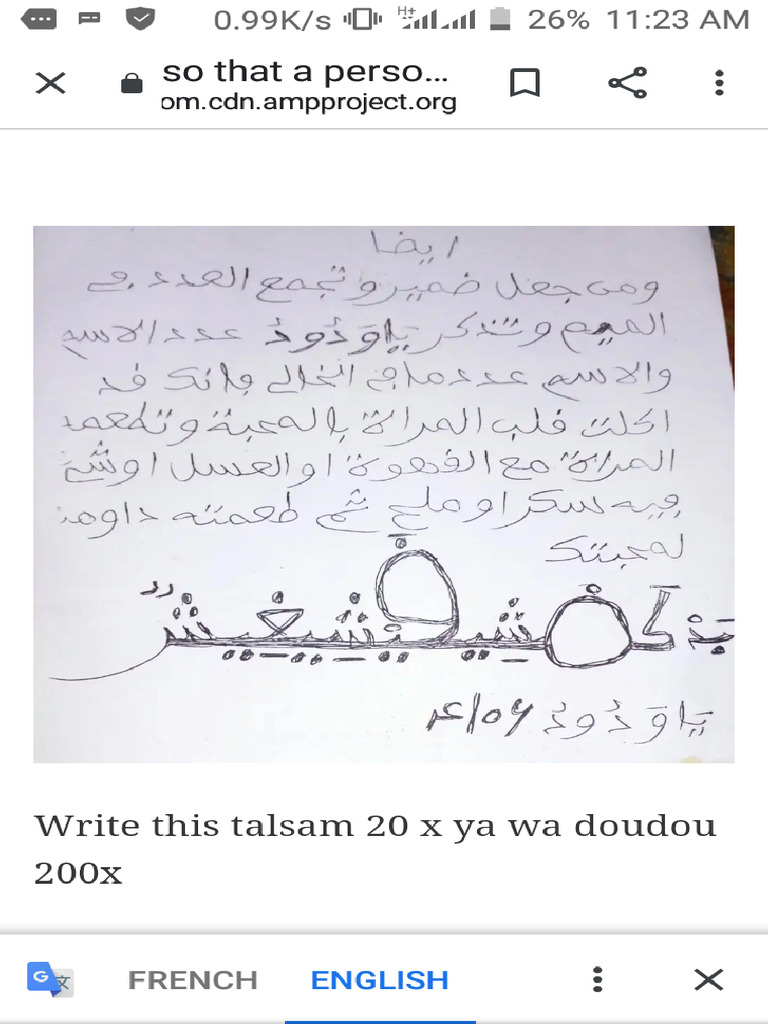 0.99K/s H+ 26% 11:23 AM
so that a perso...
om.cdn.ampproject.org
ايضا
ومن جعل ضمير وتجمع العدد في
الميم وتذكر يَاوَدُودُ عدد الاسم
والاسم عدد ما في الخالي فانك قد
اكلت قلب المراة بالمحبة وتطعمه
المراة مع القهوة او العسل او شئ
فيه سكر او ملح ثم طعمته داومة
لمحبتك
يَاوَدُودُ
Write this talsam 20 x ya wa doudou
200x
G FRENCH ENGLISH